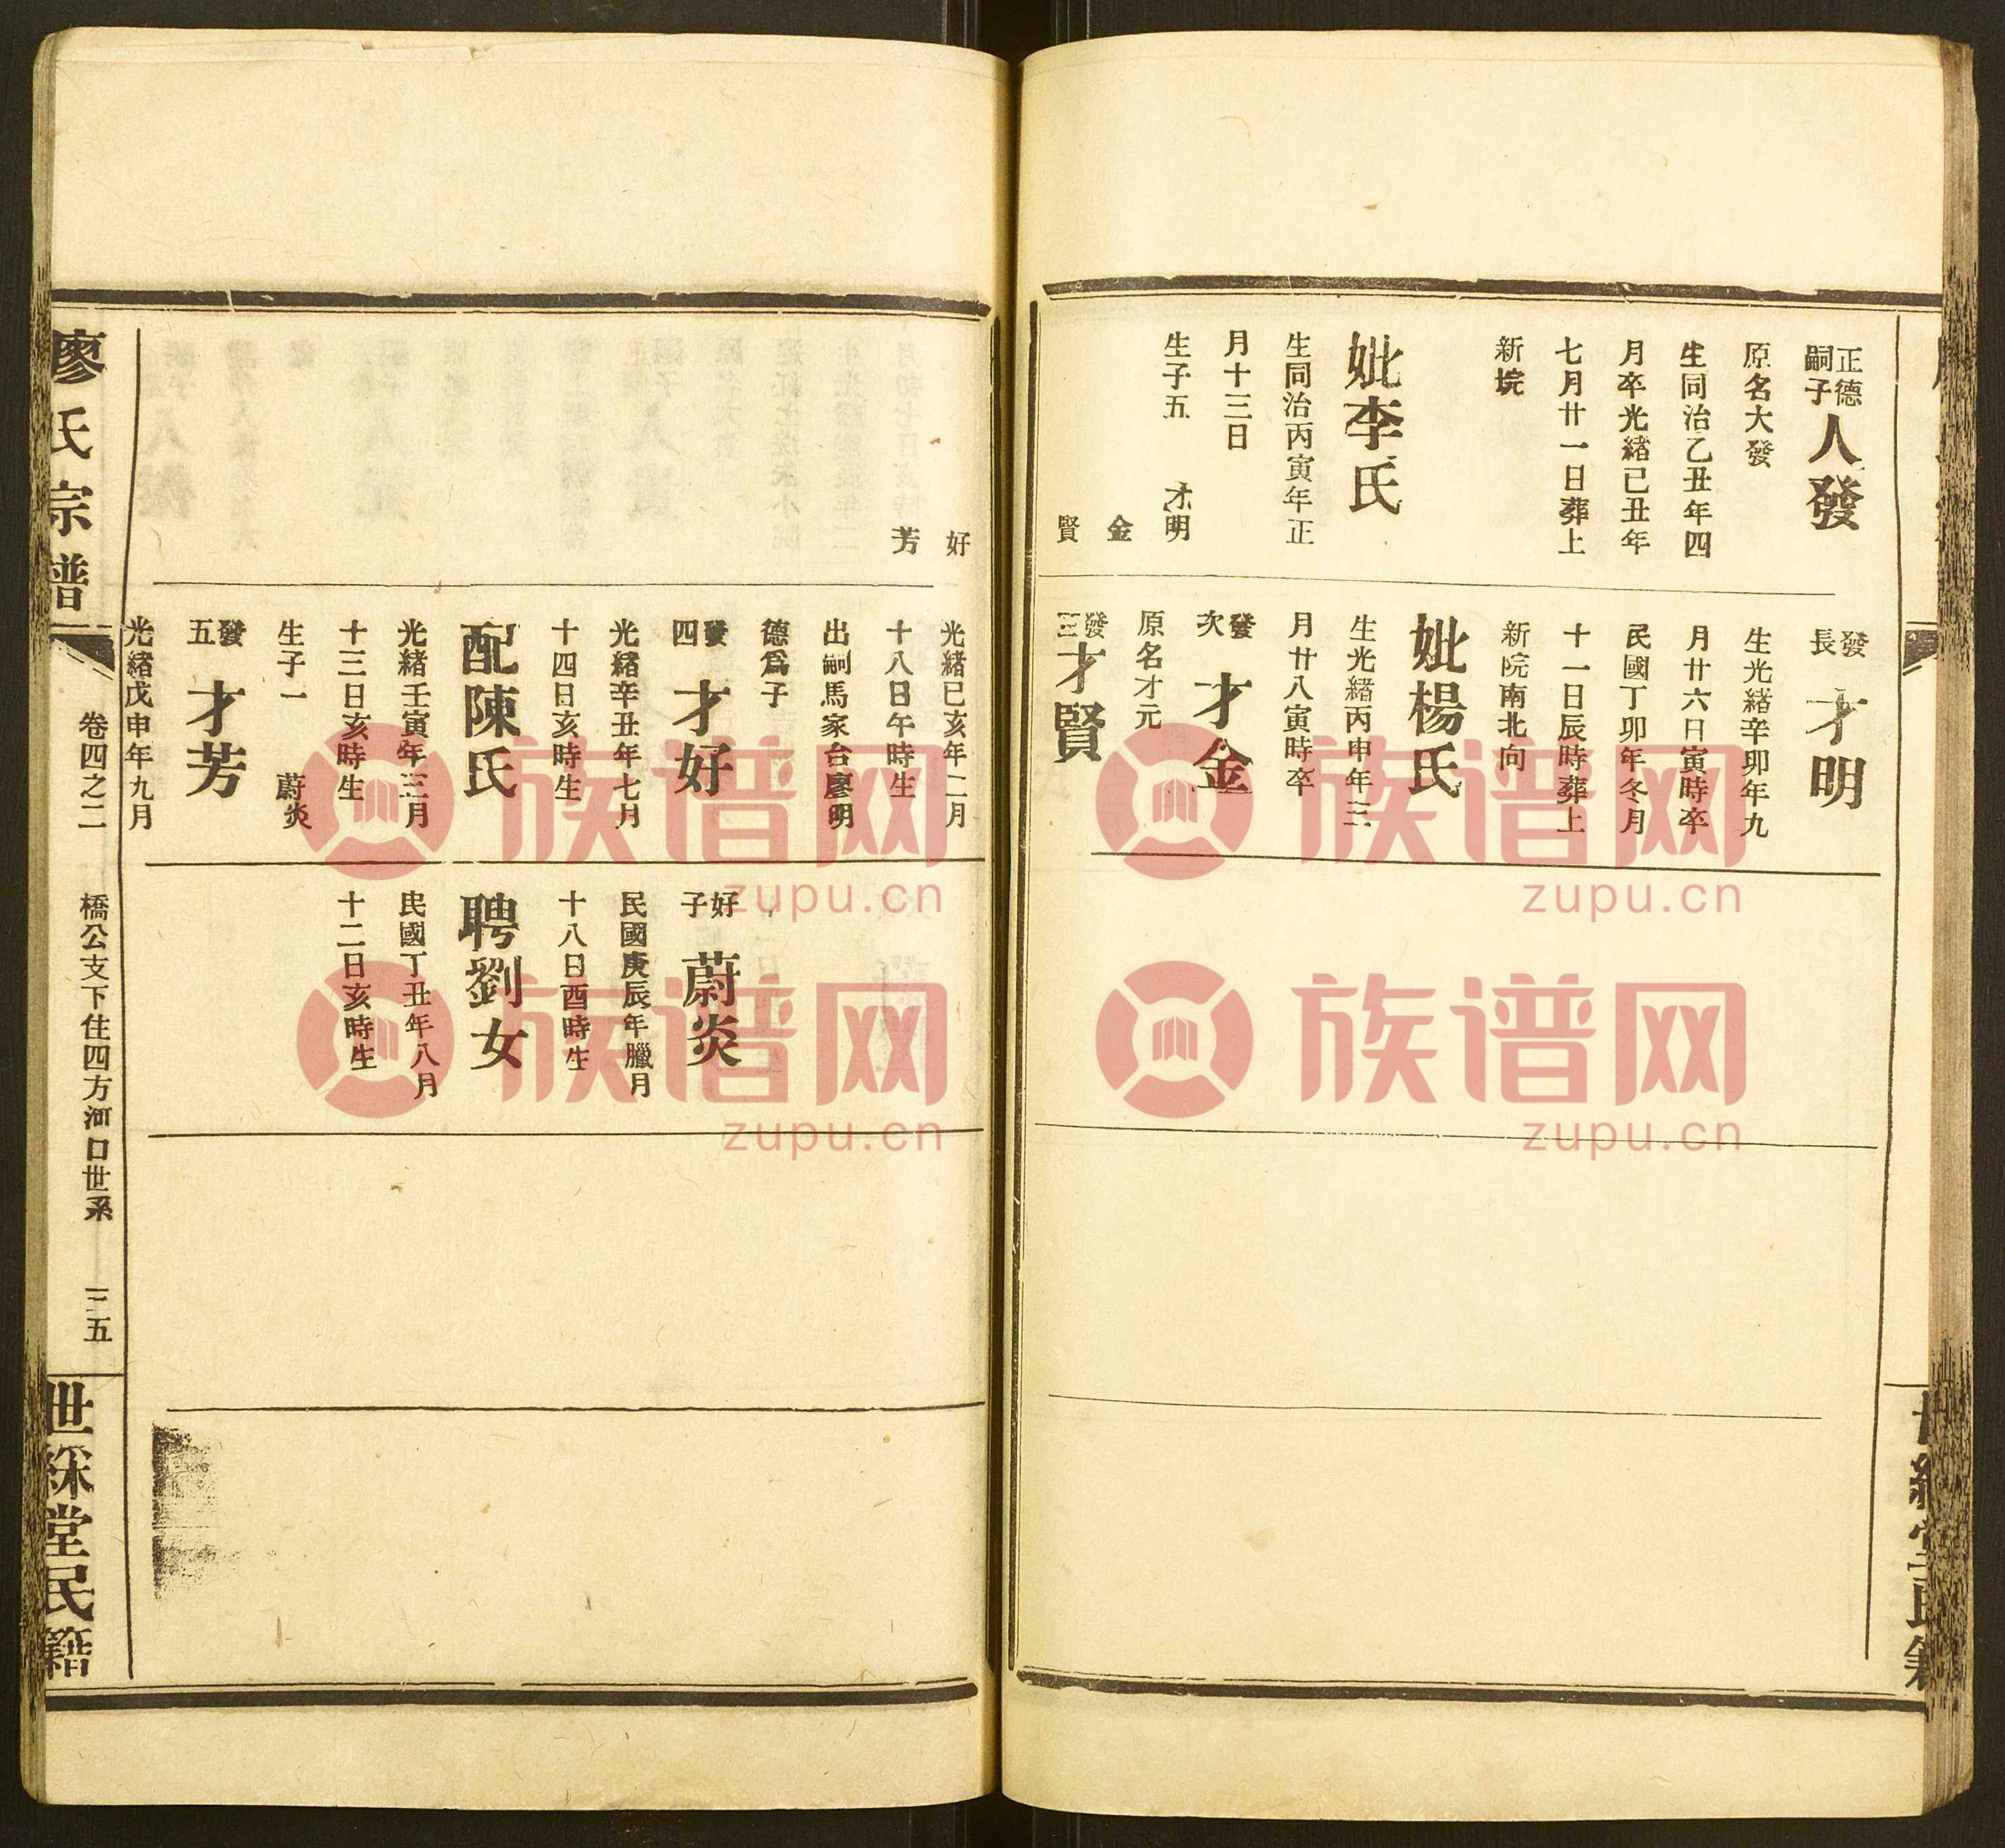 正德
嗣子
人發
原名大發
生同治乙丑年四
月卒光緒己丑年
七月廿一日葬上
新垸
妣李氏
生同治丙寅年正
月十三日
生子五 才明
金
賢
好
芳
發
長
才明
生光緒辛卯年九
月廿六日寅時卒
民國丁卯年冬月
十一日辰時葬上
新院南北向
妣楊氏
生光緒丙申年三
月廿八寅時卒
發
次
才金
原名才元
發
三
才賢
光緒己亥年二月
十八日午時生
出嗣馬家台廖明
德為子
發
四
才好
光緒辛丑年七月
十四日亥時生
配陳氏
光緒壬寅年三月
十三日亥時生
生子一 蔚炎
發
五
才芳
光緒戊申年九月
好
子
蔚炎
民國庚辰年臘月
十八日酉時生
聘劉女
民國丁丑年八月
十二日亥時生
廖氏宗譜
卷四之二
橋公支下住四方河口世系
三五
世綵堂民籍
族谱网
zupu.cn
族谱网
zupu.cn
族谱网
zupu.cn
族谱网
zupu.cn